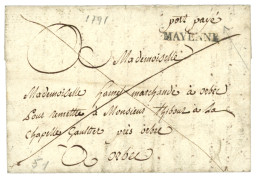 1791
port payé
MAYENNE
Mademoiselle
Mademoiselle hamel marchande à orbec
Pour remettre a Monsieur thibout a la
Chapelle Gaultier près orbec
A Orbec